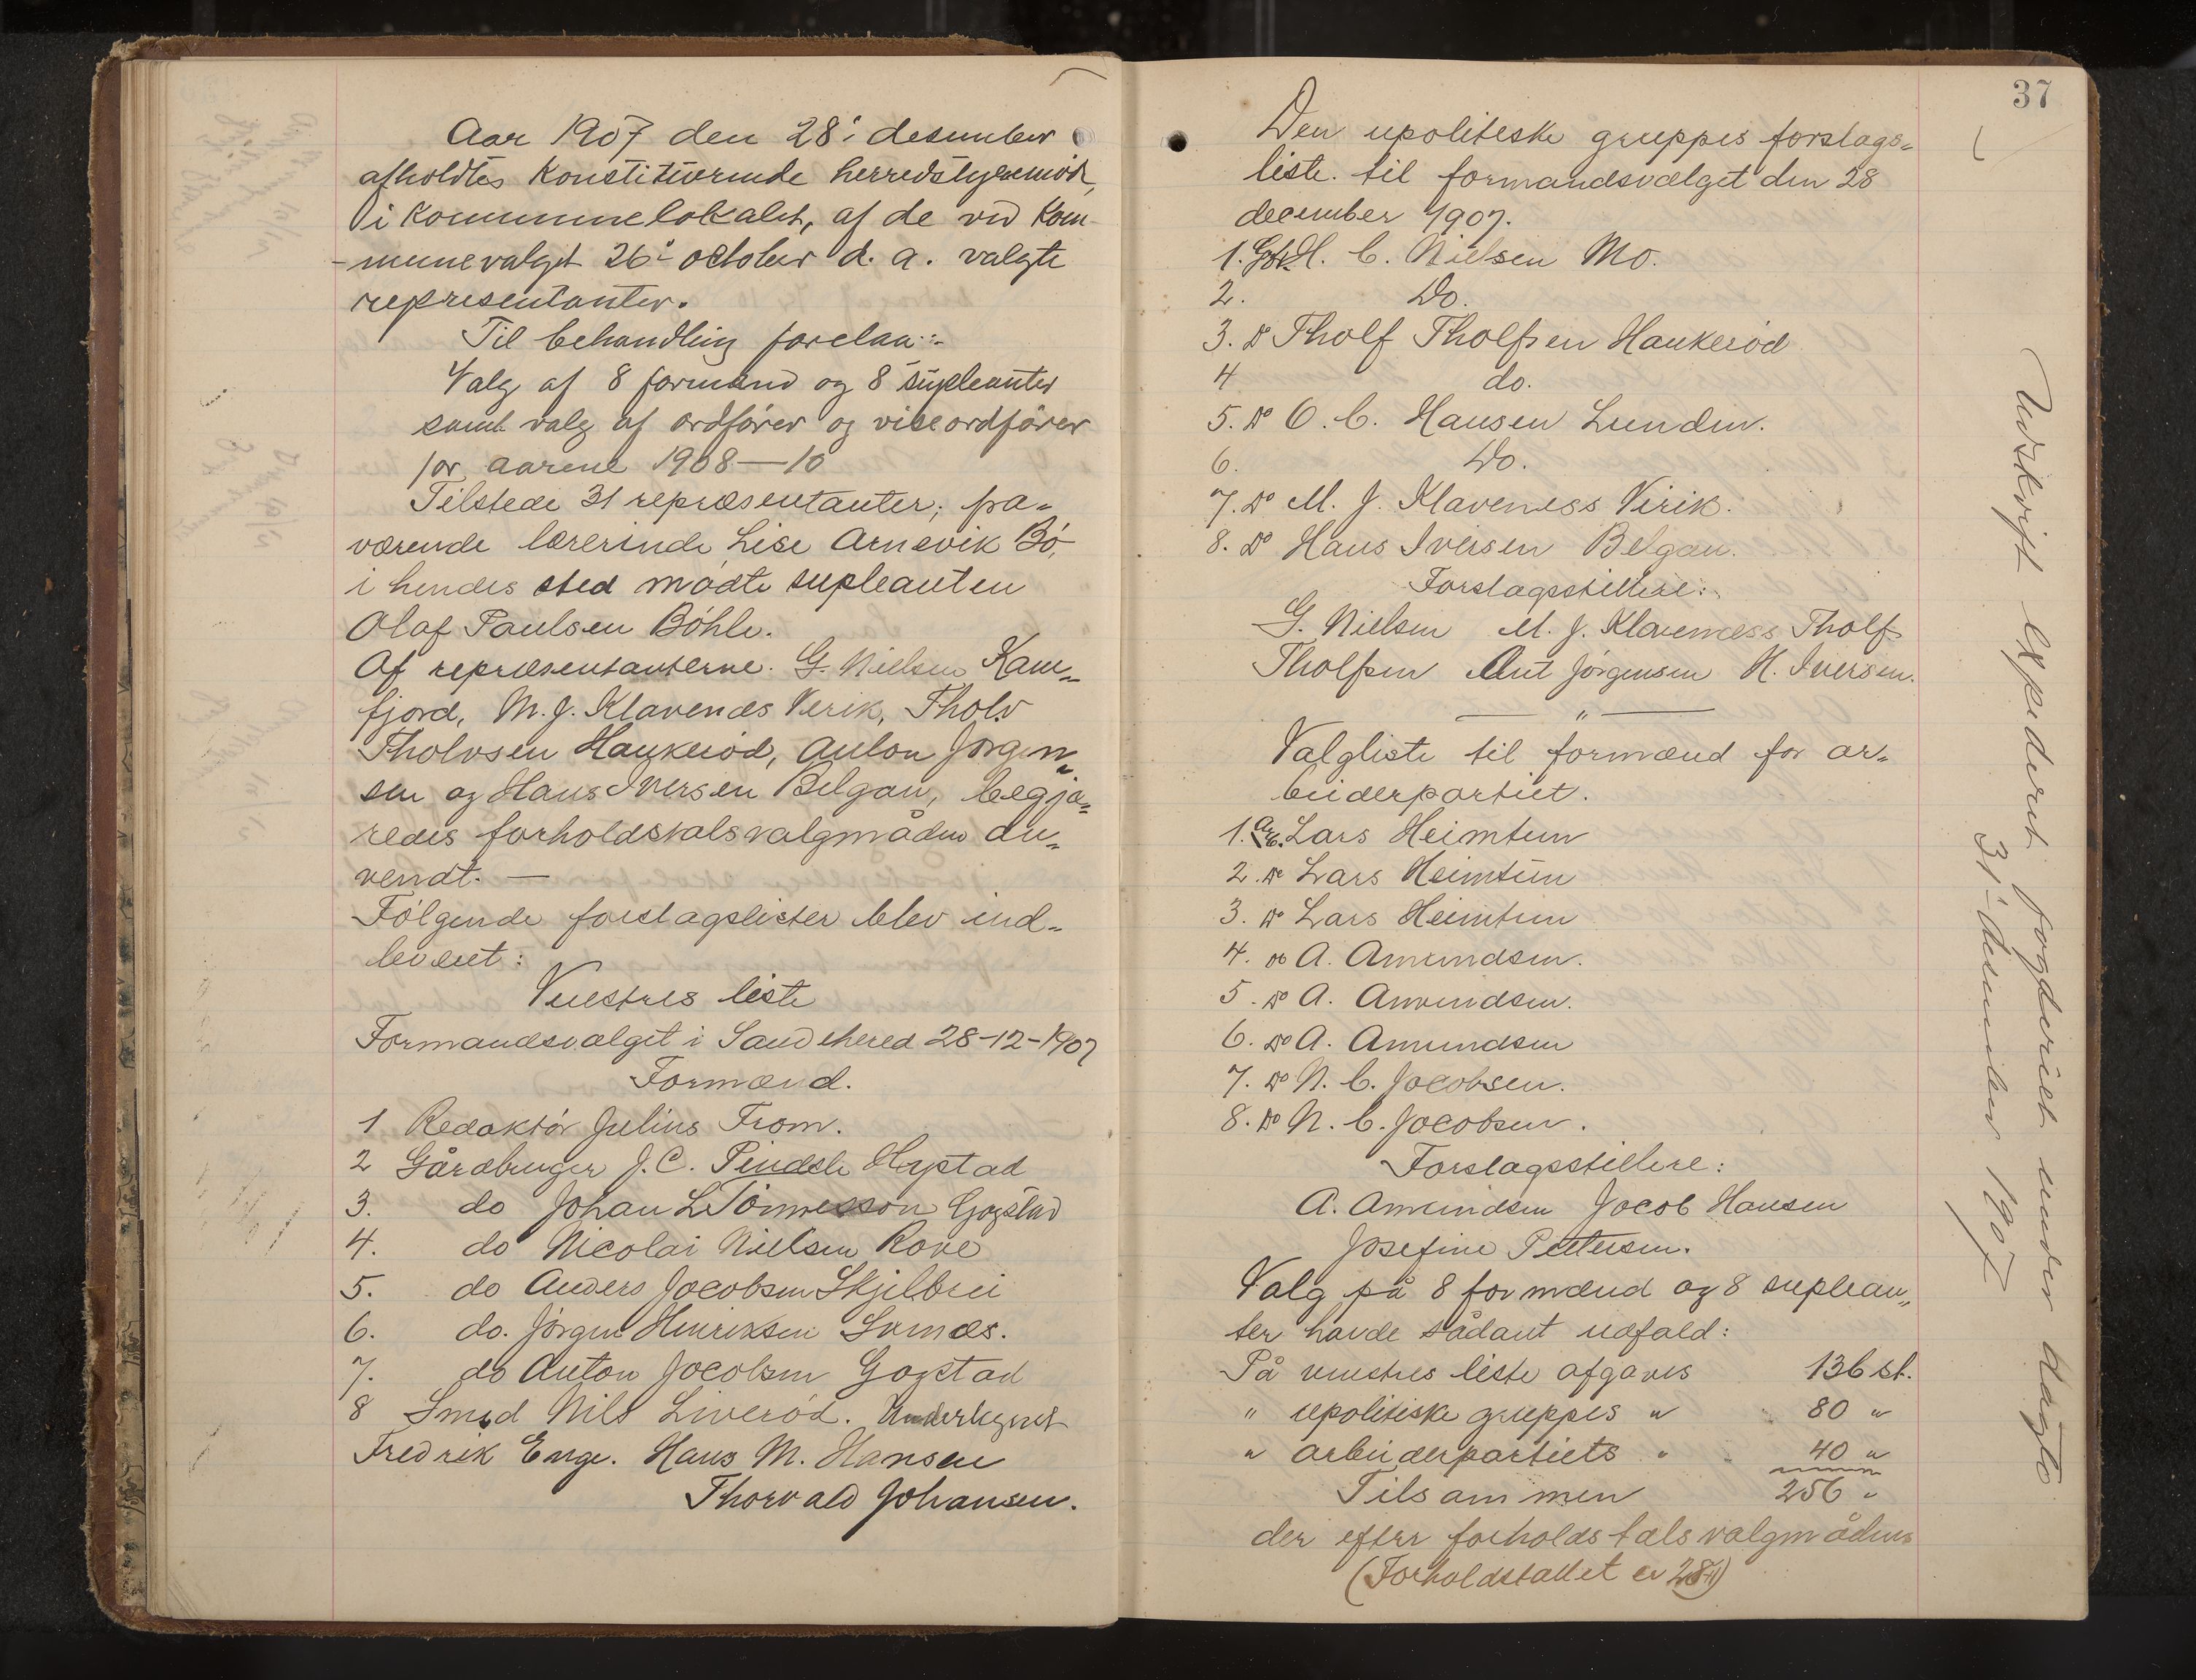 Aar 1907 den 28: desember
afholdtes konstituerende herredstyremøde,
i kommunelokalet, af de ved kom-
-munevalget 26: october d. a. valgte
representanter.
Til behandling forelaa:
Valg af 8 formænd og 8 supleanter
samt valg af ordfører og viseordfører
for aarene 1908—10
Tilstede 31 repræsentanter; fra-
værende lærerinde Lise Arnevik Bø,
i hendes sted mødte supleanten
Olaf Paulsen Bøhle.
Af repræsentanterne. G. Nielsen Kam-
fjord, M. J. Klavenæs Verik, Tholv
Tholvsen Haukerød, Anton Jørgen-
sen og Hans Iversen Belgau, begjæ-
redes forholdstalsvalgmåden an-
vendt. —
Følgende forslagslister blev ind-
leveret:
Venstres liste
Formandsvalget i Sandehered 28-12-1907
Formænd.
1 Redaktør Julius From.
2 Gårdbruger J. C. Pindsle Hystad
3. do Johan L Tørnesson Gogstad
4. do Nicolai Nielsen Rove
5. do Anders Jacobsen Skjelbrei
6. do. Jørgen Henriksen Sunnæs.
7. do Anton Jacobsen Gogstad
8 Smed Nils Liverød. Underlegnet
Fredrik Enge. Hans M. Hansen
Thorvald Johansen.
37
Den upolitiske gruppes forslags-
liste. til formandsvalget den 28
december 1907.
1. Gbr. H. C. Nielsen Mo.
2. Do.
3. Do Tholf Tholfsen Haukerød
4 do.
5. Do O. C. Hansen Lunden.
6. Do.
7. Do M. J. Klaveness Virik.
8. Do Hans Iversen Belgau.
Forslagsstillere:
G. Nielsen M. J. Klaveness Tholf
Tholfsen Ant Jørgensen H. Iversen.
— " —
Valgliste til formænd for ar-
beiderpartiet.
1. Arb. Lars Heimtun
2. Do Lars Heimtun
3. Do Lars Heimtun
4. Do A. Amundsen.
5. Do A. Amundsen.
6. Do A. Amundsen
7. Do N. C. Jacobsen.
8. Do N. C. Jacobsen.
Forslagsstillere:
A. Amundsen Jacob Hansen
Josefine Pettersen.
Valg på 8 formænd og 8 suplean-
ter havde sådant udfald:
På venstres liste afgaves 136 st.
" upolitiske gruppes " 80 "
" arbeiderpartiets " 40 "
Tilsammen 256 "
der efter forholdstalsvalgmåden
(Forholdstallet er 28 4/9)
Udskrift expederet fogderiet under dagto
31- desember 1907